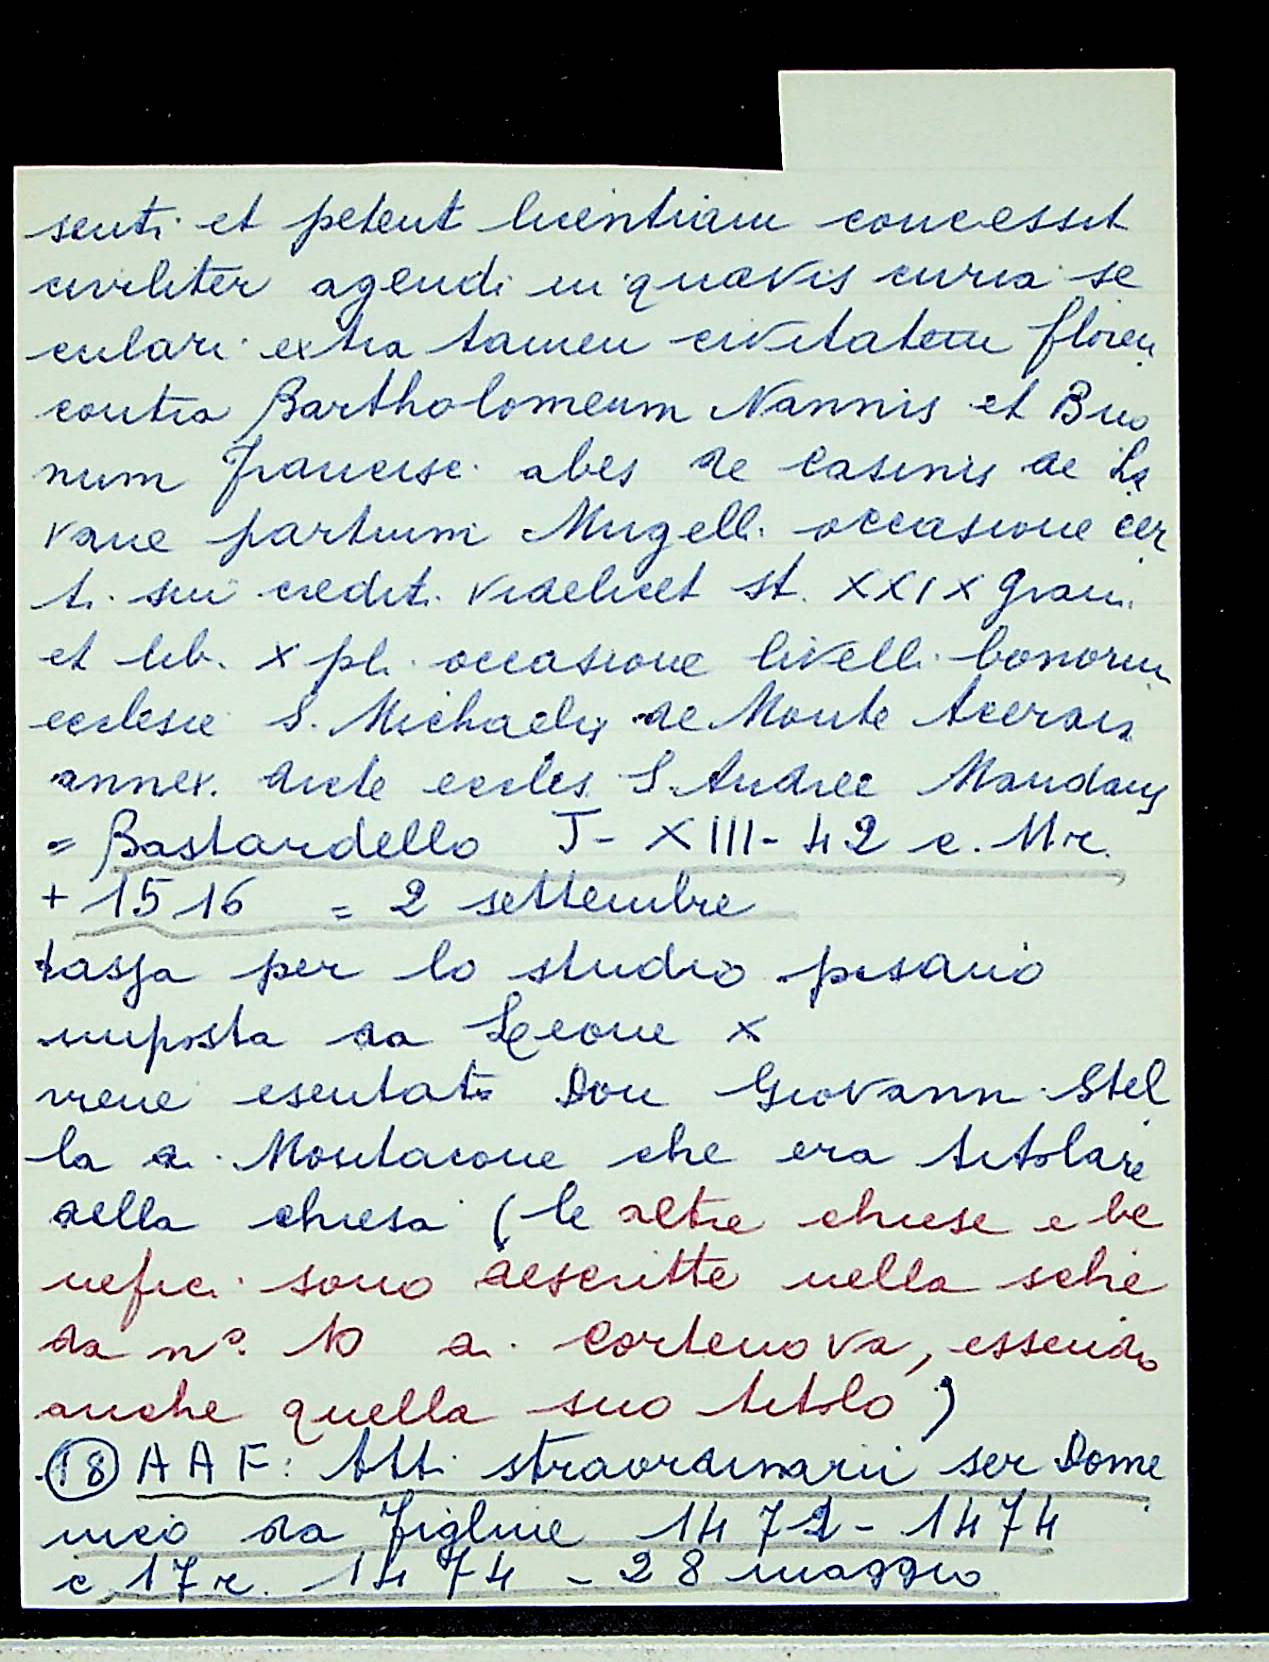 senti et petent licentiam concessit
civiliter agendi in quavis curia se
culari extra tamen civitatem floren
contra Bartholomeum Nannis et Buo
num francisc. abes de Casinis de La
vane partium Mugelli occasione cer
ti sui crediti videlicet st. XXIX grani
et lib. X pli. occasione livelli bonorum
ecclesie S. Michaelis de Monte Acerais
annex. dicte eccles. S. Andree
= Bastardello J - XIII - 42 c. 11 r.
+ 1516 = 2 settembre
tassa per lo studio pisano
imposta da Leone X
viene esentato Don Giovanni Stel
la di Montacone che era titolare
della chiesa (le altre chiese e be
nefici sono descritte nella sche
da n°. 10 di Cortenova, essendo
anche quella suo titolo)
(18) AAF: Atti straordinarii ser Dome
nico da Figline 1472 - 1474
c. 17 r. 1474 - 28 maggio